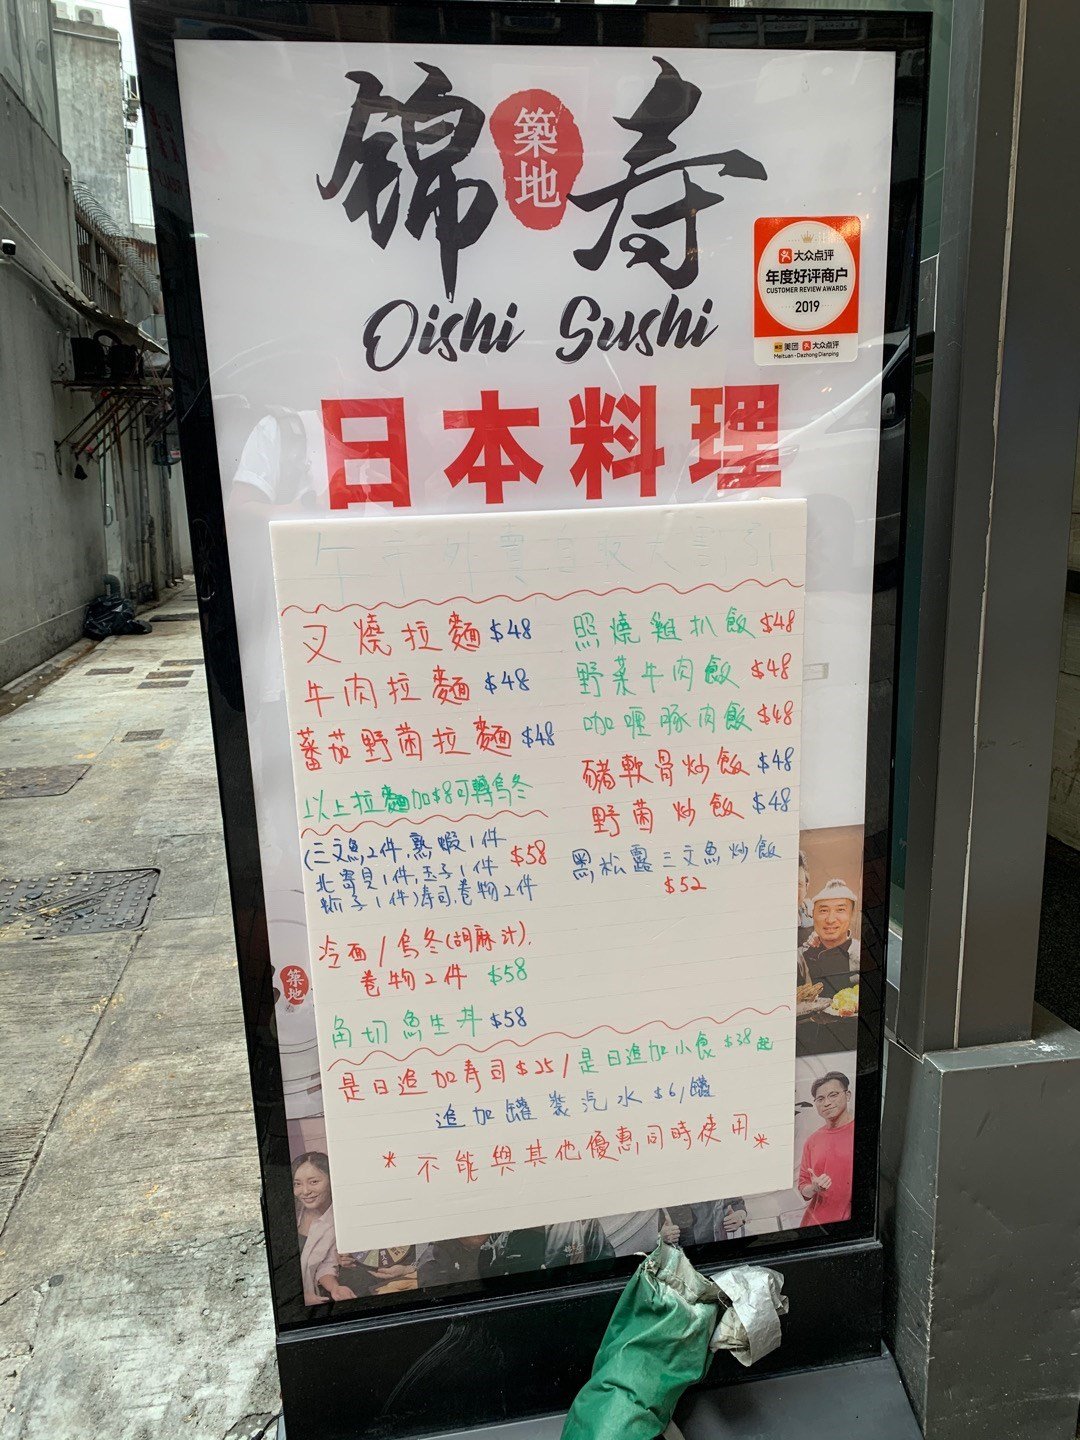 锦 築地 寿
Oishi Sushi
大众点评
年度好评商户
CUSTOMER REVIEW AWARDS
2019
美团 大众点评
Meituan-Dazhong Dianping
日本料理
午市外賣自取大割引
叉燒拉麵 $48
牛肉拉麵 $48
蕃茄野菌拉麵 $48
以上拉麵加$8可轉烏冬
(三文魚2件,熟蝦1件
北寄貝1件,玉子1件 $58
魷子1件)寿司,卷物2件
冷面/烏冬(胡麻汁),
卷物2件 $58
角切魚生丼 $58
照燒雞扒飯 $48
野菜牛肉飯 $48
咖喱豚肉飯 $48
豬軟骨炒飯 $48
野菌炒飯 $48
黑松露三文魚炒飯
$52
是日追加寿司$25/是日追加小食$38起
追加罐裝汽水$6/罐
*不能與其他優惠同時使用*
築地